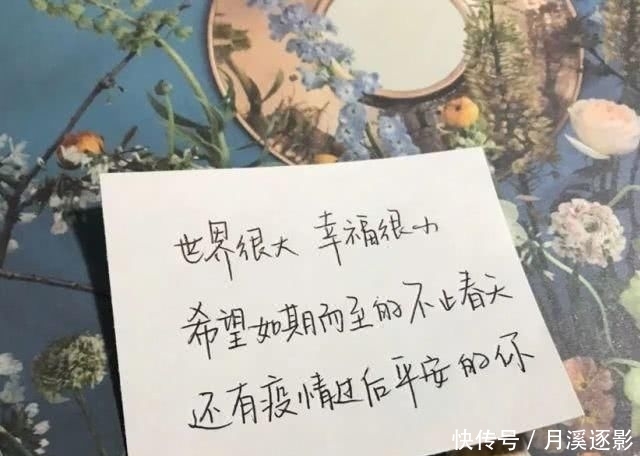 世界很大 幸福很小
希望如期而至的不止春天
还有疫情过后平安的你
快传号 / 月溪逐影